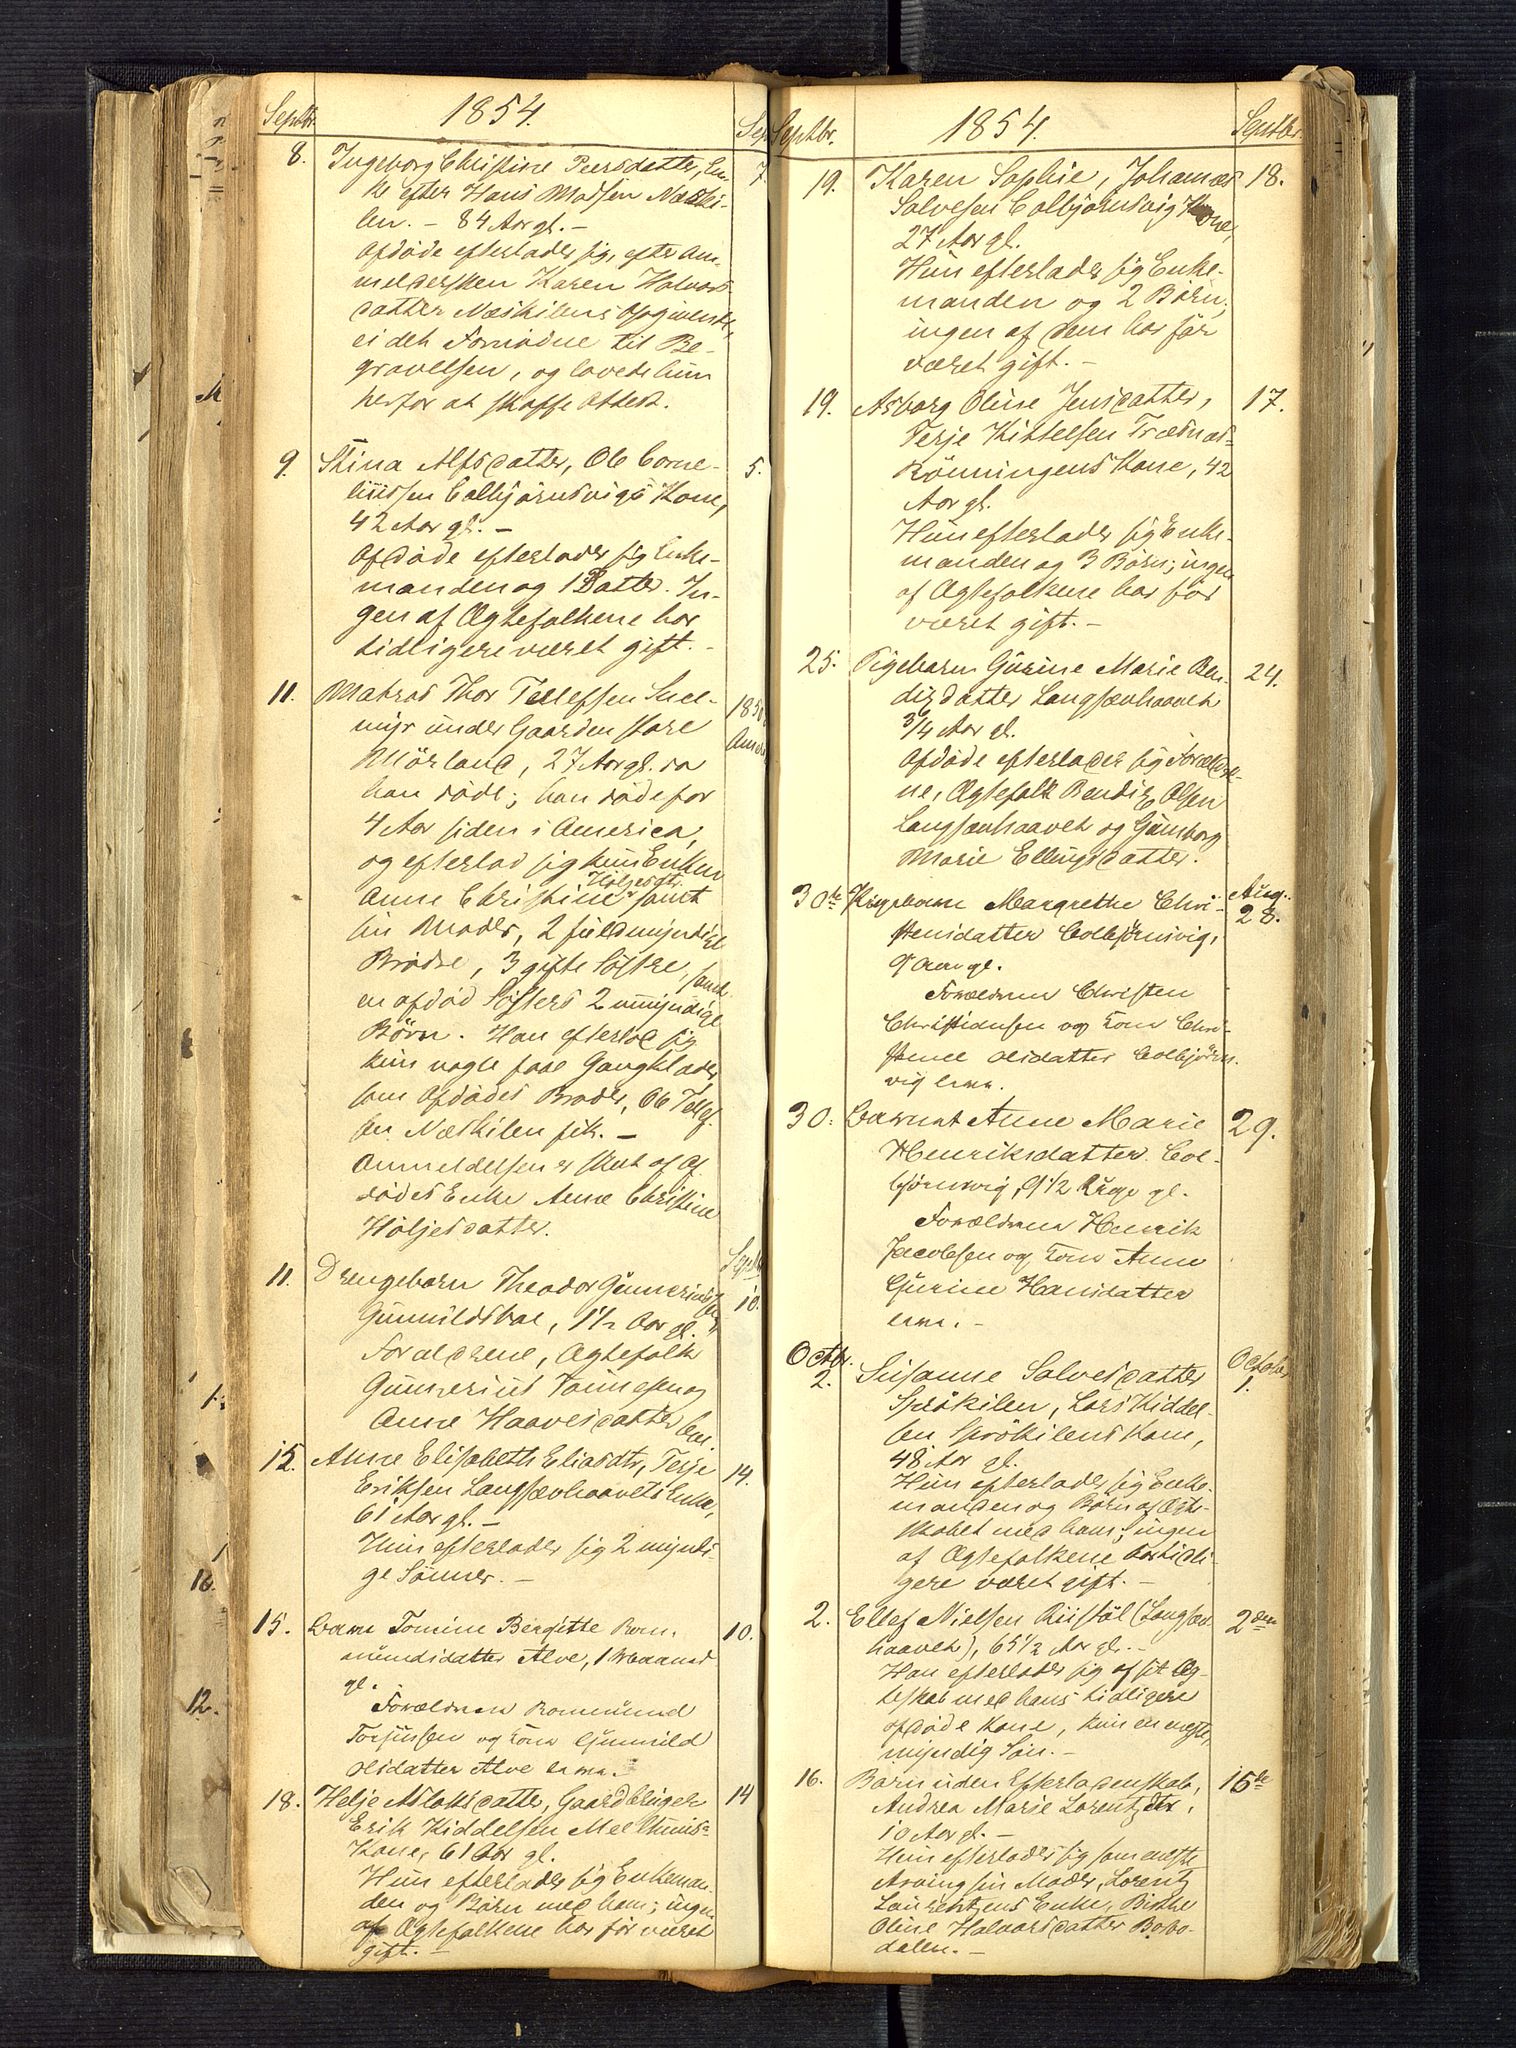 Septbr. 1854. Sep
8. Ingeborg Christine Peersdatter, En- 7.
ke efter Hans Madsen Næski-
len. - 84 Aar gl. -
Afdøde efterlader sig, efter An-
meldersken Karen Halvors-
datter Næskilens Opgivende,
ei det Fornødne til Be-
gravelsen, og lovede hun
herfor at skaffe Attest.
9. Stina Alfsdatter, Ole Corne- 5.
liussen Colbjørnsvigs Kone,
42 Aar gl. -
Afdøde efterlader sig Enke-
manden og 1 Datter. In-
gen af Ægtefolkene har
tidligere været gift. -
11. Matros Thor Tellefsen Snel- 1850
myr under Gaarden store Amer
Mørland, 27 Aar gl. da
han døde; han døde for
4 Aar siden i America,
og efterlod sig kun Enken
Anne Christine Høljesdtr. samt
sin Moder, 2 fuldmyndige
Brødre, 3 gifte Søstre, samt
en afdød Søsters 2 umyndige
Børn. Han efterlod sig
kun nogle faae Gangklæder,
som Afdødes Broder, Ole Tellef-
sen Næskilen fik. -
Anmeldelsen er skeet af Af-
dødes Enke Anne Christine
Høljesdatter.
11. Drengebarn Theodor Gunnerius- Septbr
sen Gunnildsboe, 1 1/2 Aar gl. 10.
Forældrene, Ægtefolk
Gunnerius Tønnesen og
Anne Haavesdatter
15. Anne Elisabeth Eliasdtr, Terje 14.
Eriksen Langsævhaavets Enke,
61 Aar gl. -
Hun efterlader sig 2 myndi-
ge Sønner. -
15. Barn Tomine Bergitte Rom- 10.
mundsdatter Alve, 1 Maaned
gl.
Forældrene Rommund
Torjussen og Kone Gunnild
Olsdatter Alve
18. Helje Aslaksdatter, Gaardbruger 14
Erik Kiddelsen
Kone, 61 Aar gl.
Hun efterlader sig Enkeman-
den og Børn med ham; ingen
af Ægtefolkene har før været
gift. -
Septbr. 1854. Septbr.
19. Karen Sophie, Johannes 18.
Salvesen Colbjørnsvigs Kone,
27 Aar gl.
Hun efterlader sig Enke-
manden og 2 Børn;
ingen af dem har før
været gift. -
19. Asborg Oline Jensdatter, 17.
Terje Kittelsen Trædnæs-
Rønningens Kone, 42
Aar gl.
Hun efterlader sig Enke-
manden og 3 Børn; ingen
af Ægtefolkene har før
været gift. -
25. Pigebarn Gurine Marie Ben- 24.
dixdatter Langsævhaavet
3/4 Aar gl.
Afdøde efterlader sig Forældre-
ne, Ægtefolk Bendix Olsen
Langsævhaavet og Gunborg
Marie Ellingsdatter.
30te Pigebarn Margrethe Chri- Aug.
stensdatter Colbjørnsvig, 28.
9 Aar gl.
Forældrene Christen
Christensen og Kone Chri-
stense Olsdatter Colbjørns-
vig
30. Barnet Anne Marie 29.
Henriksdatter Col-
bjørnsvig, 9 1/2 Uge gl.
Forældrene Henrik
Jacobsen og Kone Anne
Gurine Hansdatter
Octbr. October
2. Susanne Salvesdatter 1.
Sprøkilen, Lars Kiddel-
sen Sprøkilens Kone,
48 Aar gl.
Hun efterlader sig Enke-
manden og Børn af Ægte-
skabet med ham; ingen
af Ægtefolkene har tidli-
gere været gift. -
2. Ellef Nielsen Riistøl (Langsæv- 2den
haavet), 65 1/2 Aar gl. -
Han efterlader sig af sit Æg-
teskab med hans tidligere
afdøde Kone, kun en
myndig Søn. -
16. Barn uden Efterladenskab, 15de
Andrea Marie Lorentzdtr,
10 Aar gl. -
Hun efterlader sig som næste
Arving sin Moder, Lorentz
Laurentzens Enke, Birthe
Oline Halvorsdatter Bobo-
dalen. -